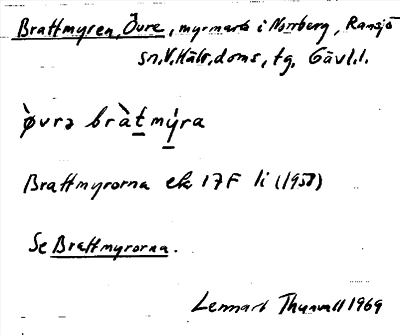 Brattmyren, Övre, myrmark i Norrberg, Ransjö
sn, V. Häls. doms, tg, Gävl.l.
òvrə bràtmýra
Brattmyrorna ek 17F li (1958)
Se Brattmyrorna.
Lennart Thunvall 1969